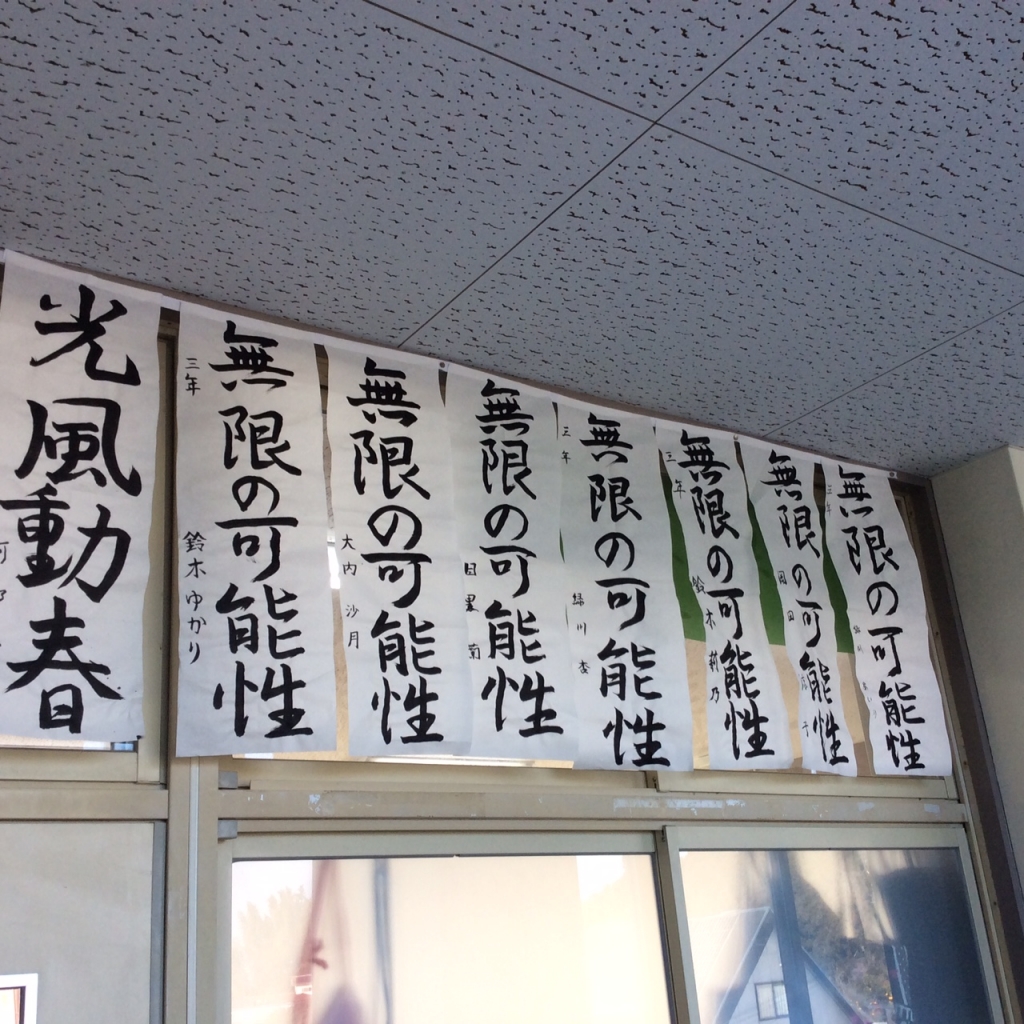 光風動春
無限の可能性
三年
鈴木ゆかり
無限の可能性
大内 沙月
無限の可能性
目黒
無限の可能性
三年
緑川
無限の可能性
三年
鈴木 莉乃
無限の可能性
無限の可能性
三年